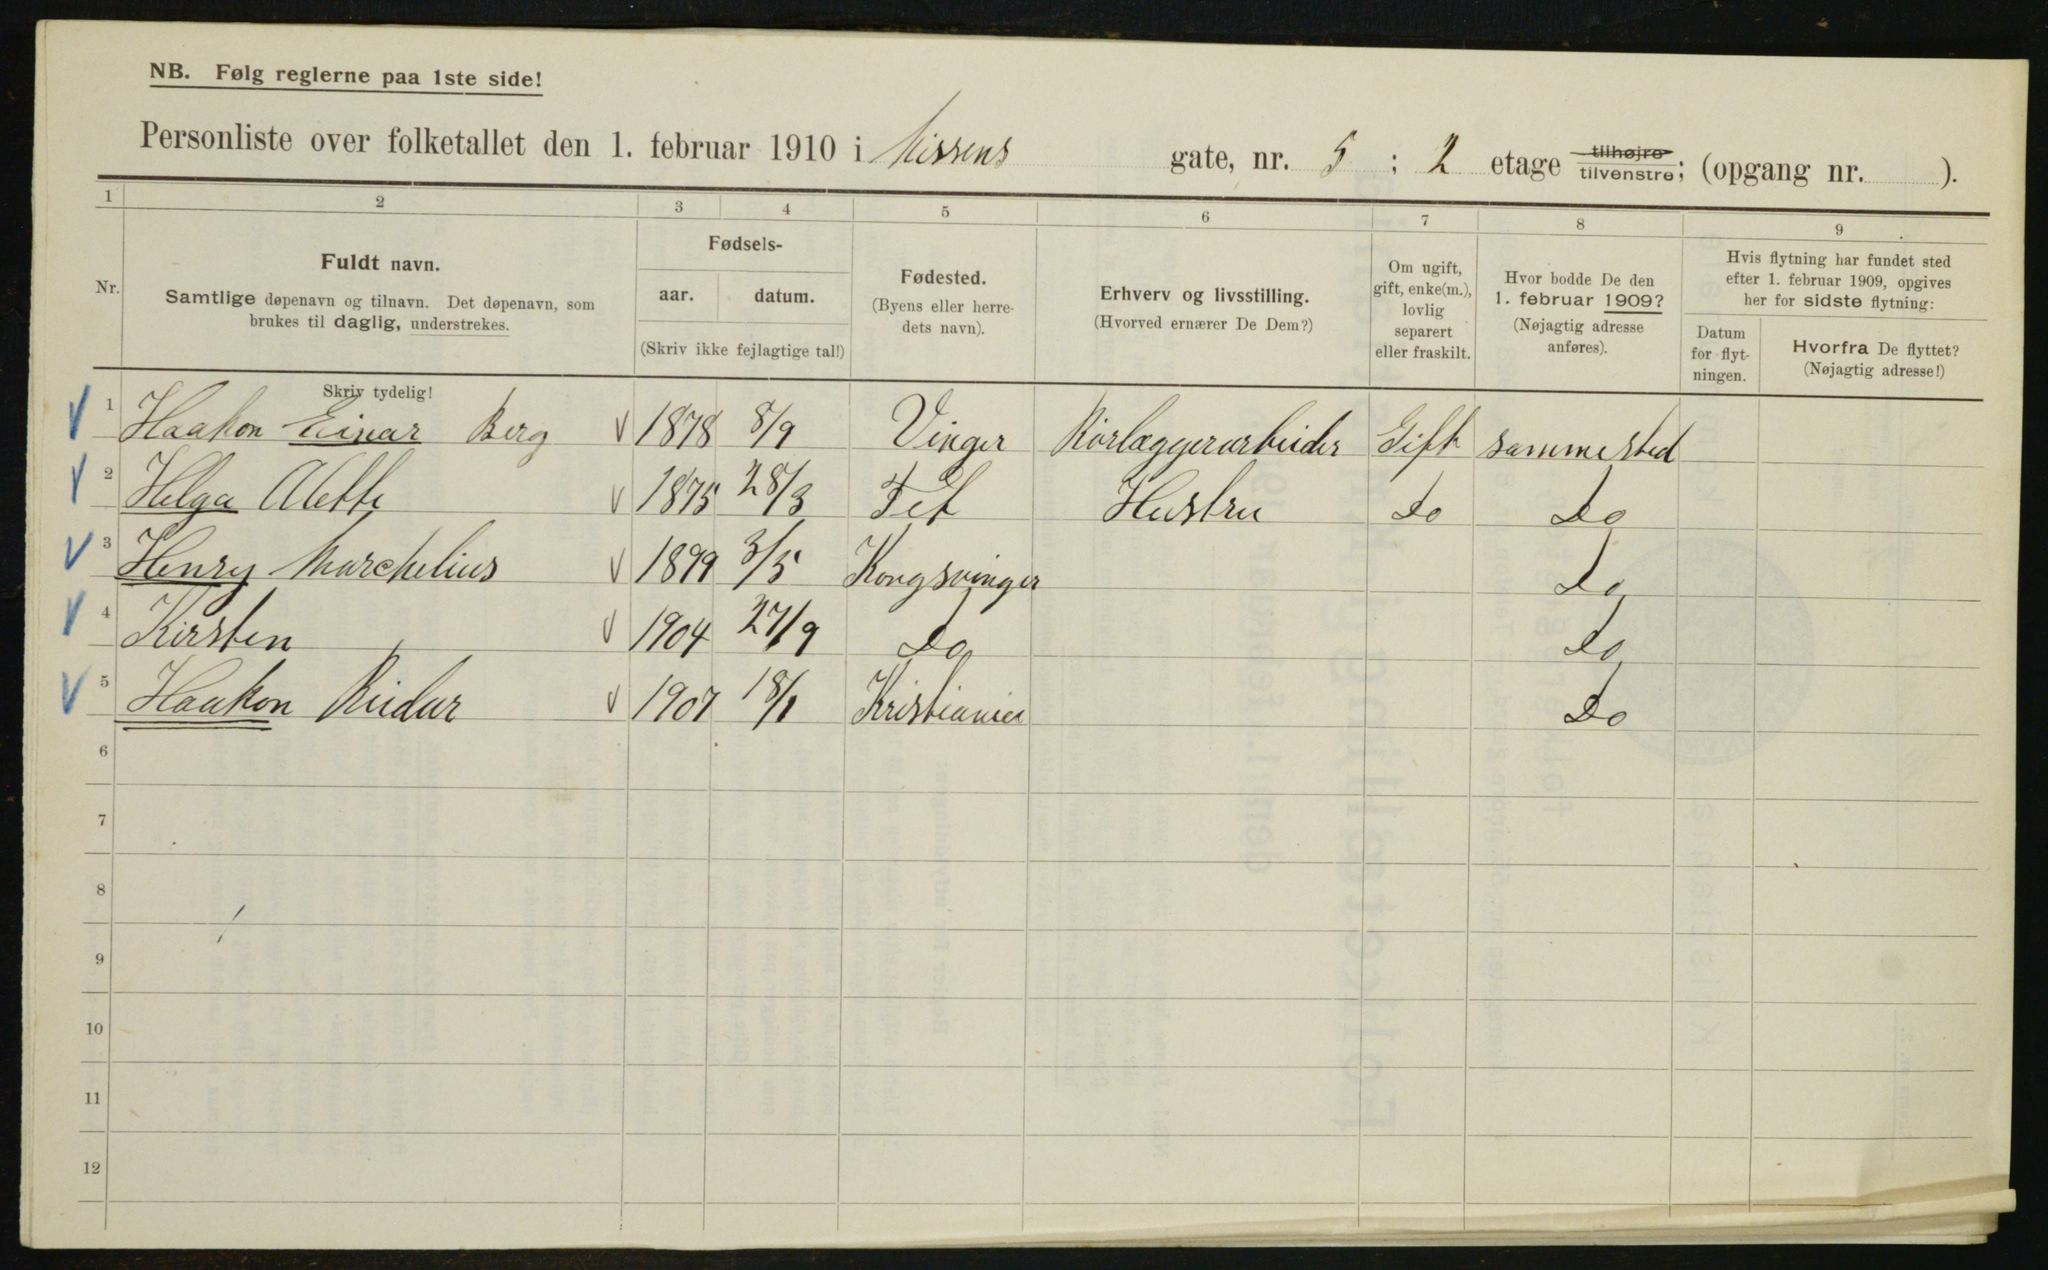 NB. Følg reglerne paa 1ste side!
Personliste over folketallet den 1. februar 1910 i Nissens gate, nr. 5 ; 2 etage tilhøjre tilvenstre; (opgang nr. ).
1 2 3 4 5 6 7 8 9
Nr.
Fuldt navn.
Samtlige døpenavn og tilnavn. Det døpenavn, som
brukes til daglig, understrekes.
Skriv tydelig!
Fødsels-
aar. datum.
(Skriv ikke fejlagtige tal!)
Fødested.
(Byens eller herre-
dets navn).
Erhverv og livsstilling.
(Hvorved ernærer De Dem?)
Om ugift,
gift, enke(m.),
lovlig
separert
eller fraskilt.
Hvor bodde De den
1. februar 1909?
(Nøjagtig adresse
anføres).
Hvis flytning har fundet sted
efter 1. februar 1909, opgives
her for sidste flytning:
Datum
for flyt-
ningen.
Hvorfra De flyttet?
(Nøjagtig adresse!)
1 Haakon Einar Berg 1878 8/9 Vinger Rörlæggerarbeider Gift sammested
2 Helga Alette 1875 28/3 Fet Hustru Do Do
3 Henry Marchelius 1899 3/5 Kongsvinger Do
4 Kirsten 1904 27/9 Do Do
5 Haakon Reidar 1907 18/1 Kristiania Do
6
7
8
9
10
11
12